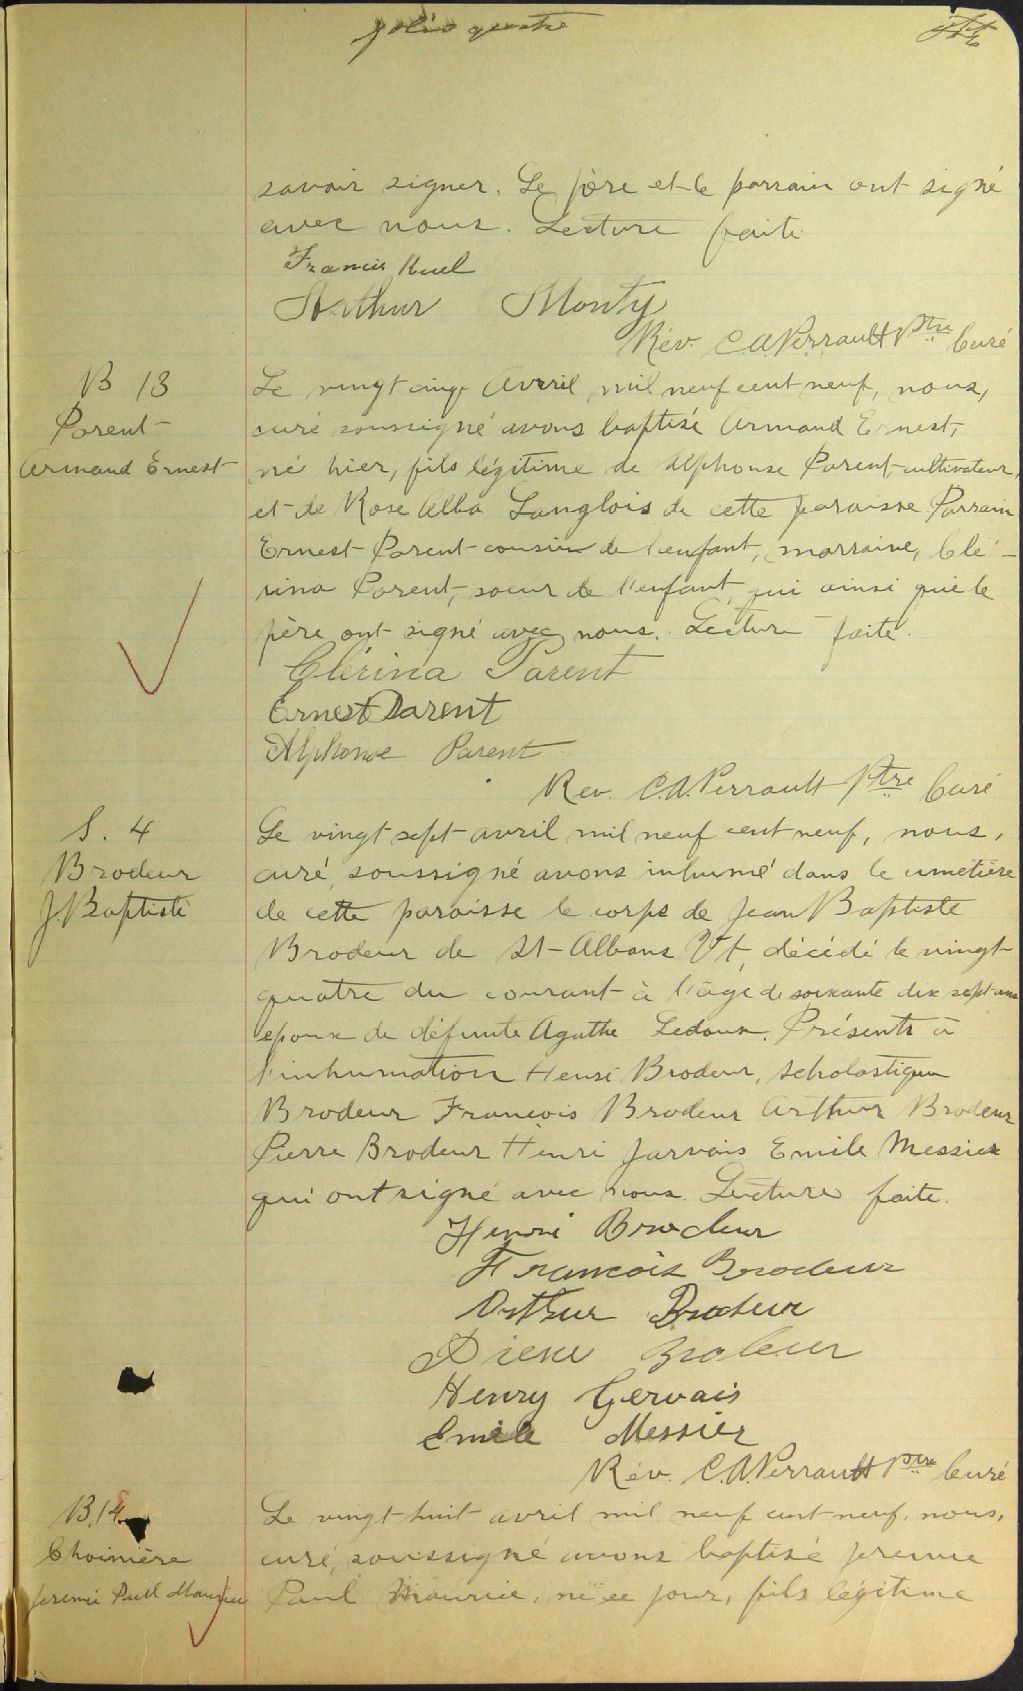 folio quatre
savoir signer. Le père et le parrain ont signé
avec nous. Lecture faite
Francis Ruel
Arthur Monty
Rév. C.A. Perrault Ptre Curé
B 13
Parent
Armand Ernest
Le vingt cinq Avril mil neuf cent neuf, nous,
curé soussigné avons baptisé Armand Ernest,
né hier, fils légitime de Alphonse Parent cultivateur,
et de Rose Alba Langlois de cette paroisse. Parrain
Ernest Parent cousin de l'enfant, marraine, Clé-
rina Parent, soeur de l'enfant, qui ainsi que le
père ont signé avec nous. Lecture faite.
Clérina Parent
Ernest Parent
Alphonse Parent
Rev. C.A. Perrault Ptre Curé
S. 4
Brodeur
J. Baptiste
Le vingt sept avril mil neuf cent neuf, nous,
curé, soussigné avons inhumé dans le cimetière
de cette paroisse le corps de Jean Baptiste
Brodeur de St-Albans Vt, décédé le vingt
quatre du courant à l'âge de soixante dix sept ans
epoux de défunte Agathe Ledoux. Présents à
l'inhumation Henri Brodeur, Scholastique
Brodeur François Brodeur Arthur Brodeur
Pierre Brodeur Henri Jarvais Emile Messier
qui ont signé avec nous. Lecture faite.
Henri Brodeur
Francois Brodeur
Arthur Brodeur
Pierre Brodeur
Henry Gervais
Emile Messier
Rév. C.A. Perrault Ptre Curé
B. 14
Choinière
Jeremie Paul Maurice
Le vingt huit avril mil neuf cent neuf, nous,
curé, soussigné avons baptisé Jeremie
Paul Maurice, né ce jour, fils légitime